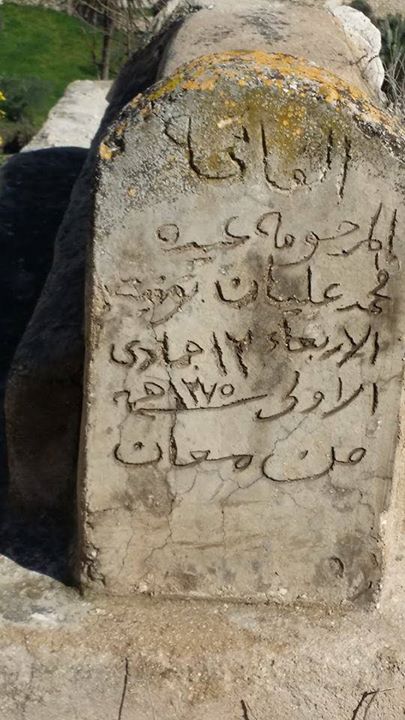 الفاتحة
المرحومه عيده
محمد عليان توفيت
الاربعاء ١٢ جمادى
الاولى سنة ١٣٧٥ هـ
من معان